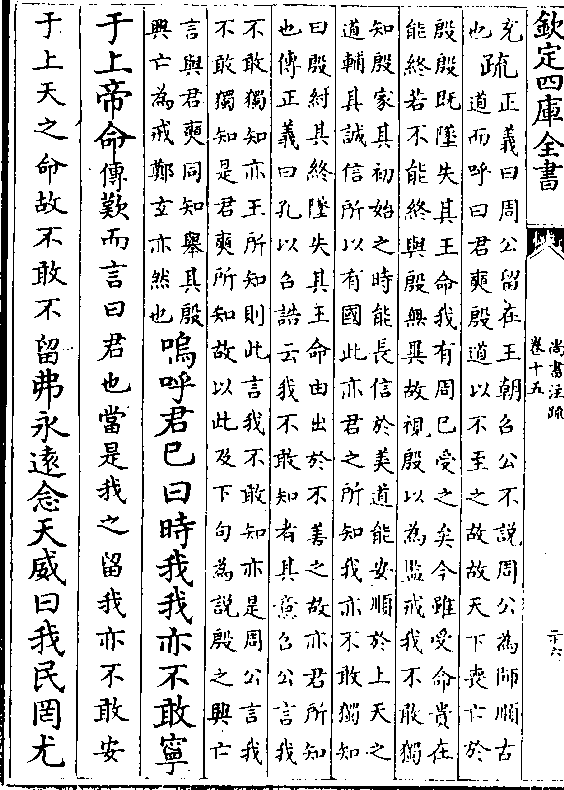 欽定四庫全書
尚書注疏
卷十五
二十六
充
也
疏
正義曰周公留在王朝召公不說周公為師順古
道而呼曰君奭殷道以不至之故故天下喪亡於
殷殷既墜失其王命我有周已受之矣今雖受命貴在
能終若不能終與殷無異故視殷以為監戒我不敢獨
知殷家其初始之時能長信於美道能安順於上天之
道輔其誠信所以有國此亦君之所知我亦不敢獨知
曰殷紂其終墜失其王命由出於不善之故亦君所知
也傳正義曰孔以召誥云我不敢知者其意召公言我
不敢獨知亦王所知則此言我不敢知亦是周公言我
不敢獨知是君奭所知故以此及下句為說殷之興亡
言與君奭同知舉其殷
興亡為戒鄭玄亦然也
嗚呼君已曰時我我亦不敢寧
于上帝命傳歎而言曰君也當是我之留我亦不敢安
于上天之命故不敢不留弗永遠念天威曰我民罔尤